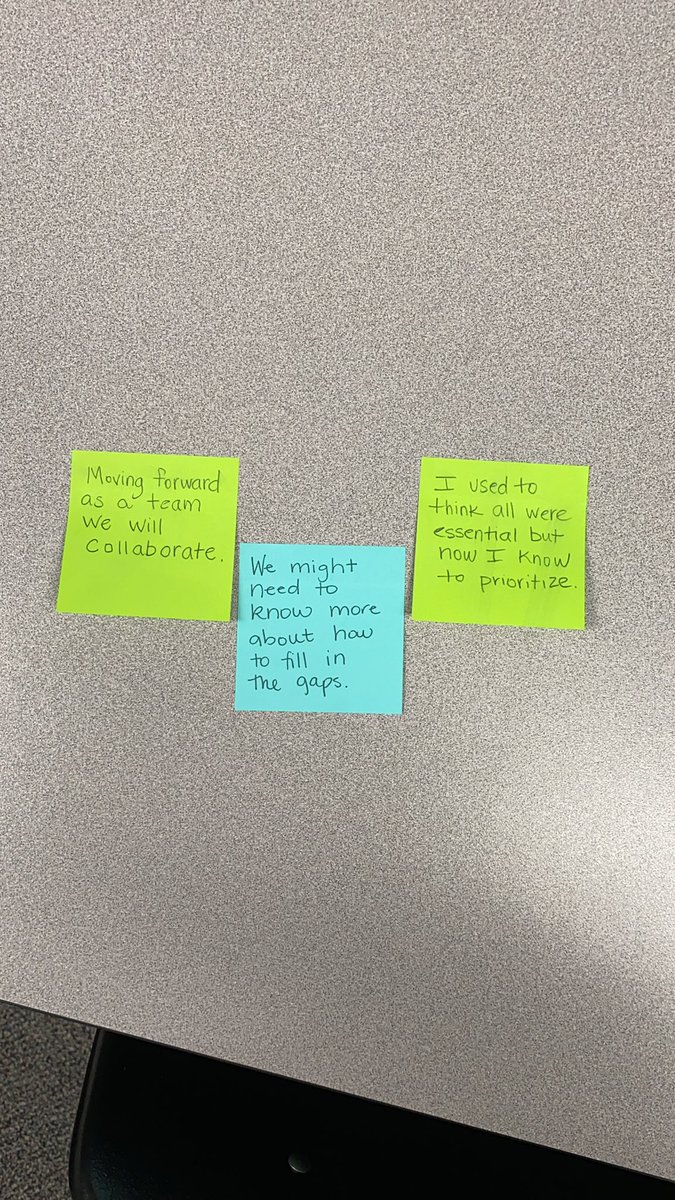 Moving forward
as a team
we will
collaborate.
We might
need to
know more
about how
to fill in
the gaps.
I used to
think all were
essential but
now I know
to prioritize.